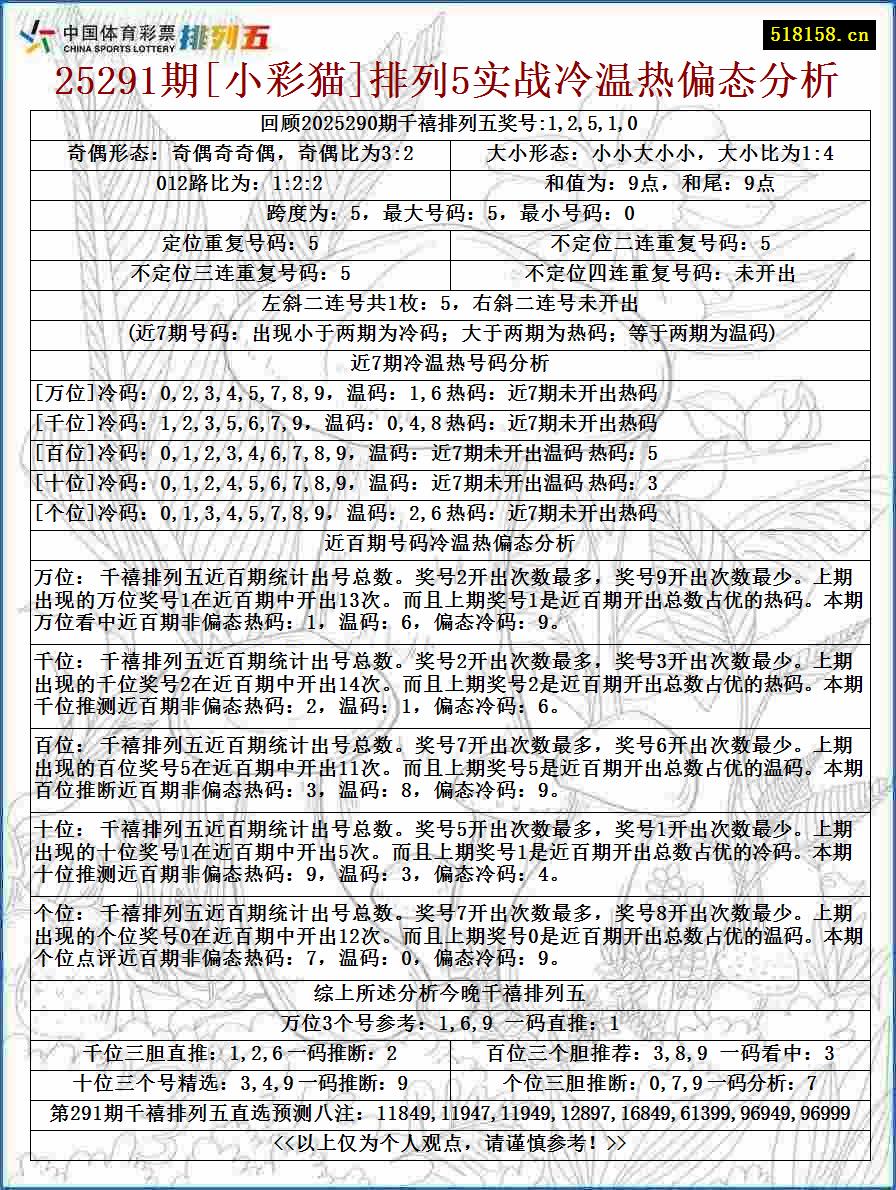 中国体育彩票
CHINA SPORTS LOTTERY
排列五
518158.cn
25291期[小彩猫]排列5实战冷温热偏态分析
回顾2025290期千禧排列五奖号:1,2,5,1,0
奇偶形态：奇偶奇奇偶，奇偶比为3:2
大小形态：小小大小小，大小比为1:4
012路比为：1:2:2
和值为：9点，和尾：9点
跨度为：5，最大号码：5，最小号码：0
定位重复号码：5
不定位二连重复号码：5
不定位三连重复号码：5
不定位四连重复号码：未开出
左斜二连号共1枚：5，右斜二连号未开出
(近7期号码：出现小于两期为冷码；大于两期为热码；等于两期为温码)
近7期冷温热号码分析
[万位]冷码：0,2,3,4,5,7,8,9，温码：1,6 热码：近7期未开出热码
[千位]冷码：1,2,3,5,6,7,9，温码：0,4,8 热码：近7期未开出热码
[百位]冷码：0,1,2,3,4,6,7,8,9，温码：近7期未开出温码 热码：5
[十位]冷码：0,1,2,4,5,6,7,8,9，温码：近7期未开出温码 热码：3
[个位]冷码：0,1,3,4,5,7,8,9，温码：2,6 热码：近7期未开出热码
近百期号码冷温热偏态分析
万位： 千禧排列五近百期统计出号总数。奖号2开出次数最多，奖号9开出次数最少。上期
出现的万位奖号1在近百期中开出13次。而且上期奖号1是近百期开出总数占优的热码。本期
万位看中近百期非偏态热码：1，温码：6，偏态冷码：9。
千位： 千禧排列五近百期统计出号总数。奖号2开出次数最多，奖号3开出次数最少。上期
出现的千位奖号2在近百期中开出14次。而且上期奖号2是近百期开出总数占优的热码。本期
千位推测近百期非偏态热码：2，温码：1，偏态冷码：6。
百位： 千禧排列五近百期统计出号总数。奖号7开出次数最多，奖号6开出次数最少。上期
出现的百位奖号5在近百期中开出11次。而且上期奖号5是近百期开出总数占优的温码。本期
百位推断近百期非偏态热码：3，温码：8，偏态冷码：9。
十位： 千禧排列五近百期统计出号总数。奖号5开出次数最多，奖号1开出次数最少。上期
出现的十位奖号1在近百期中开出5次。而且上期奖号1是近百期开出总数占优的冷码。本期
十位推测近百期非偏态热码：9，温码：3，偏态冷码：4。
个位： 千禧排列五近百期统计出号总数。奖号7开出次数最多，奖号8开出次数最少。上期
出现的个位奖号0在近百期中开出12次。而且上期奖号0是近百期开出总数占优的温码。本期
个位点评近百期非偏态热码：7，温码：0，偏态冷码：9。
综上所述分析今晚千禧排列五
万位3个号参考：1,6,9 一码直推：1
千位三胆直推：1,2,6 一码推断：2
百位三个胆推荐：3,8,9 一码看中：3
十位三个号精选：3,4,9 一码推断：9
个位三胆推断：0,7,9 一码分析：7
第291期千禧排列五直选预测八注：11849,11947,11949,12897,16849,61399,96949,96999
<<以上仅为个人观点，请谨慎参考！>>